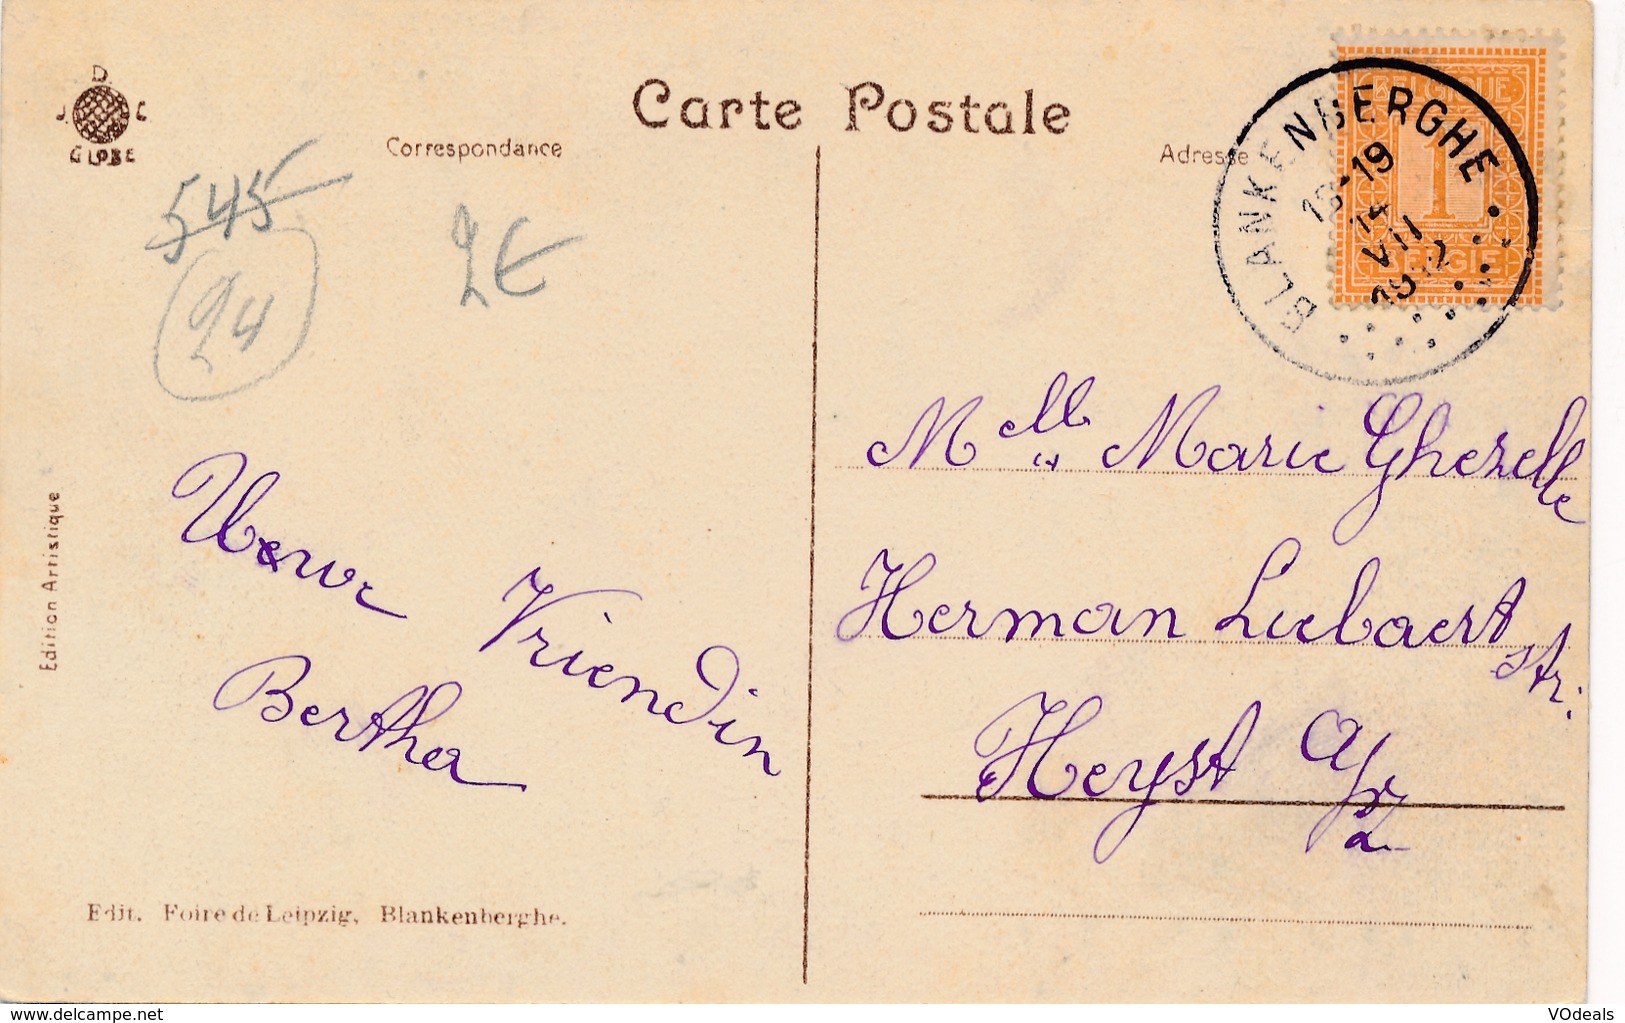 D
J. C
GLOBE
Carte Postale
Correspondance
Adresse
BLANKENBERGHE
18-19
14
VII
1912
BELGIQUE
1
BELGIE
545
24
2€
Melle Marie Ghezelle
Uewe Vriendin
Bertha
Herman Liebaert
str:
Heyst a/z
Edition Artistique
Edit. Foire de Leipzig, Blankenberghe.
www.delcampe.net
VOdeals